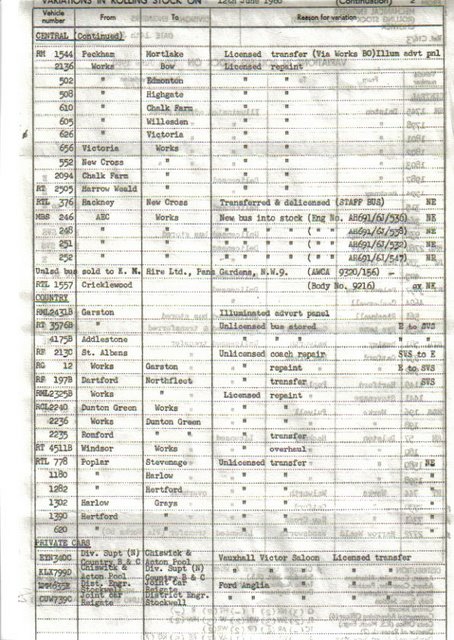 VARIATIONS IN ROLLING STOCK ON 12th June 1968 (Continuation) 2
Vehicle number From To Reason for variation
CENTRAL (Continued)
RM 1544 Peckham Mortlake Licensed transfer (Via Works BO)Illum advt pnl
2136 Works Bow Licensed repaint
502 " Edmonton " "
508 " Highgate " "
610 " Chalk Farm " "
605 " Willesden " "
626 " Victoria " "
656 Victoria Works " "
552 New Cross " " "
2094 Chalk Farm " " "
RT 2505 Harrow Weald " " "
RTL 376 Hackney New Cross Transferred & delicensed (STAFF BUS) NE
MBS 246 AEC Works New bus into stock (Eng No. AH691/6J/536) NE
248 " " " " " " ( " " AH691/6J/538) NE
251 " " " " " " ( " " AH691/6J/532) NE
252 " " " " " " ( " " AH691/6J/547) NE
Unlsd bus sold to K. N. Hire Ltd., Pans Gardens, N.W.9. (AWCA 9320/156) -
RTL 1557 Cricklewood (Body No. 9216) ex NE
COUNTRY
RML2431B Garston Illuminated advert panel
RT 3576B " Unlicensed bus stored E to SVS
4175B Addlestone " " " " " "
RF 2130 St. Albans Unlicensed coach repair SVS to E
RG 12 Works Garston " " repaint E to SVS
RF 197B Dartford Northfleet " " transfer SVS
RML2325B Works " Licensed repaint
RCL2240 Dunton Green Works " "
2236 Works Dunton Green " "
2235 Romford " " transfer
RT 4511B Windsor Works " overhaul
RTL 778 Poplar Stevenage Unlicensed transfer NE
1180 " Harlow " " "
1282 " Hertford " " "
1302 Harlow Grays " " "
1390 Hertford " " " "
620 " " " " "
PRIVATE CARS
Div. Supt (N) Chiswick &
Country B & C Acton Pool Vauxhall Victor Saloon Licensed transfer
KLX799D Chiswick & Acton Pool Div. Supt (N) Country B & C " " " " "
Dist. Engr. Stockwell Joint car Reigate Ford Anglia " "
CUW739C Joint car Reigate District Engr. Stockwell " " " "